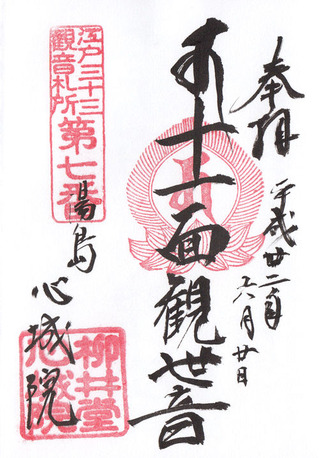 奉拝
平成廿二年
六月廿日
十一面観世音
江戸三十三
観音札所
第七番
湯島
心城院
柳井堂
心城院